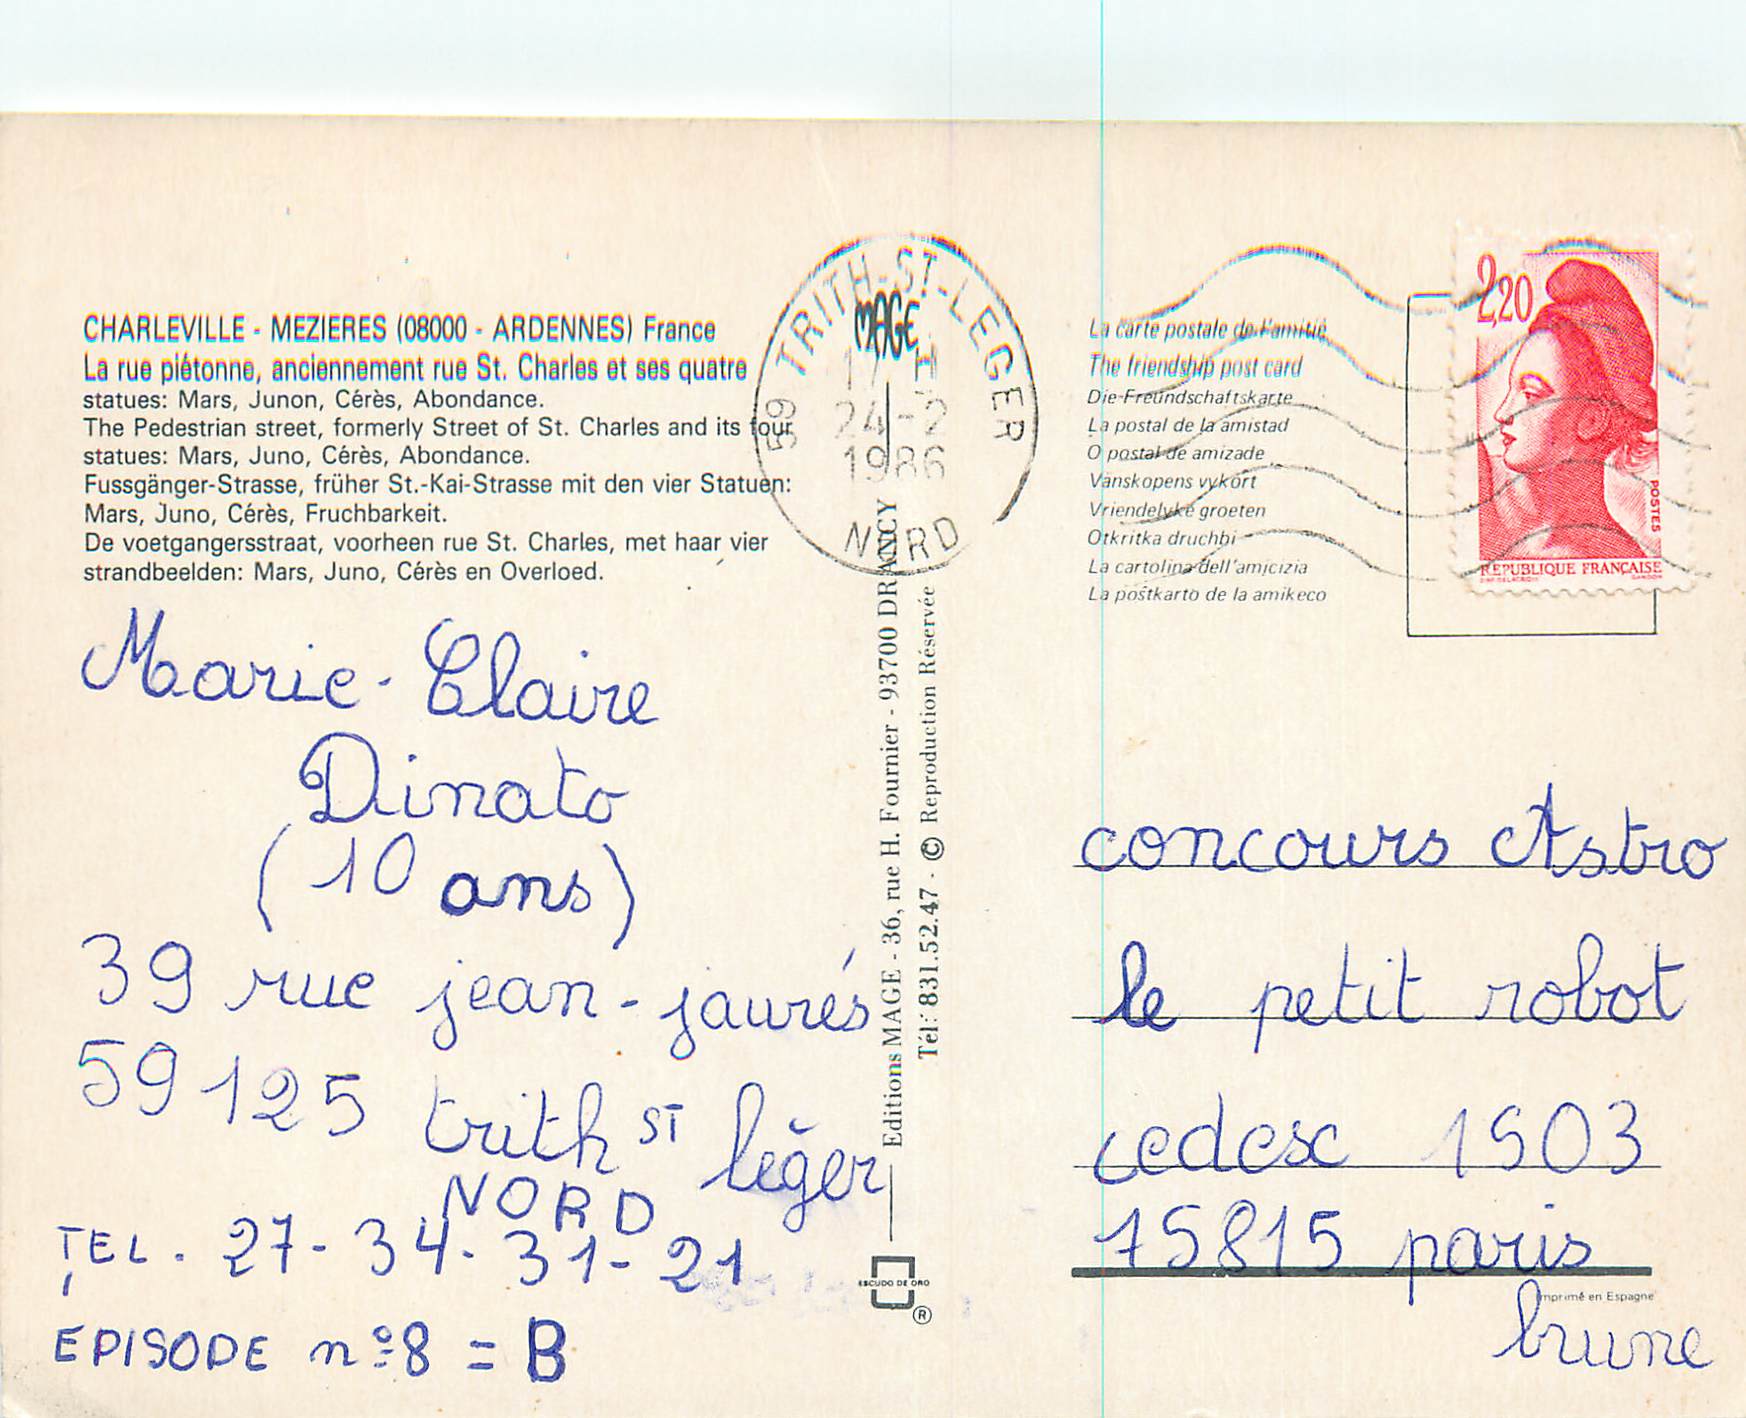 CHARLEVILLE - MEZIERES (08000 - ARDENNES) France
La rue piétonne, anciennement rue St. Charles et ses quatre
statues: Mars, Junon, Cérès, Abondance.
The Pedestrian street, formerly Street of St. Charles and its four
statues: Mars, Juno, Cérès, Abondance.
Fussgänger-Strasse, früher St.-Kai-Strasse mit den vier Statuen:
Mars, Juno, Cérès, Fruchbarkeit.
De voetgangersstraat, voorheen rue St. Charles, met haar vier
strandbeelden: Mars, Juno, Cérès en Overloed.
Marie-Claire
Dinato
(10 ans)
39 rue jean-jaurés
59125 trith ST léger
NORD
TEL. 27-34-31-21
EPISODE n°8 = B
59 TRITH-ST-LEGER
MAGE
17 H
24-2
1986
NORD
Editions MAGE - 36, rue H. Fournier - 93700 DRANCY
Tél: 831.52.47 - © Reproduction Réservée
ESCUDO DE ORO
®
La carte postale de l'amitié
The friendship post card
Die Freundschaftskarte
La postal de la amistad
O postal de amizade
Vanskopens vykort
Vriendelyke groeten
Otkritka druchbi
La cartolina dell'amicizia
La postkarto de la amikeco
2,20
POSTES
REPUBLIQUE FRANÇAISE
GANDON
concours Astro
le petit robot
cedesc 1503
75815 paris
brune
Imprimé en Espagne